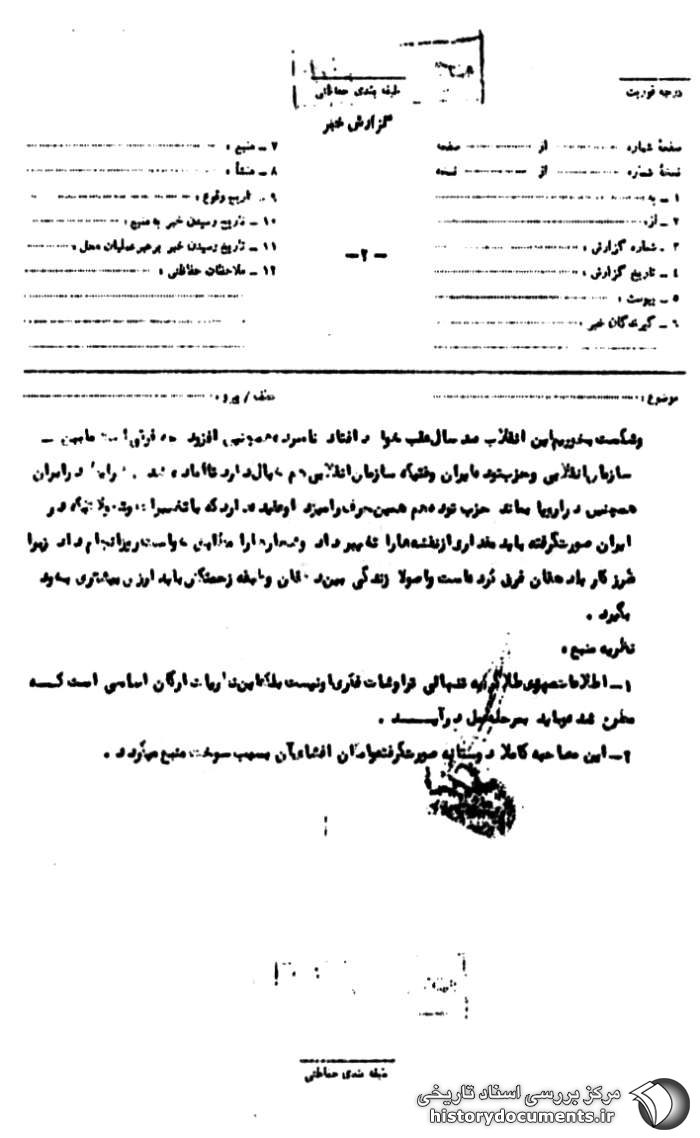 درجه فوریت
طبقه بندی حفاظتی
گزارش خبر
صفحهٔ شماره از صفحه
نسخهٔ شماره از نسخه
۱ ـ به
۲ ـ از:
۳ ـ شماره گزارش :
۴ ـ تاریخ گزارش :
۵ ـ پیوست :
۶ ـ گیرندگان خبر :
۷ ـ منبع :
۸ ـ منشأ :
۹ ـ تاریخ وقوع :
۱۰ ـ تاریخ رسیدن خبر به منبع :
۱۱ ـ تاریخ رسیدن خبر برهبر عملیات محل :
۱۲ ـ ملاحظات حفاظتی :
ـ ۲ ـ
موضوع :
عطف / پیرو :
وشکست بخوریم این انقلاب صد سال عقب خواهد افتاد نامبرده همچنین افزود چه فرقی است مابین ـ
سازمان انقلابی وحزب توده ایران وقتیکه سازمان انقلابی هم خیال دارد تا آماده شدن در ایران
همچنین در اروپا بماند حزب توده هم همین حرف را میزند او عقیده دارد که با تغییرات
ایران صورت گرفته باید مقداری از نقشه ها را تغییر داد و شعارها را مطابق خواست روز انجام داد زیرا
طرز کار با دهقان فرق کرده است و اصولا زندگی بین دهقان و طبقه زحمتکش باید ارزش بیشتری بخود
بگیرد .
نظریه منبع :
۱ ـ اطلاعات تنهائی تراوشات فکری او نیست بلکه این نظریات ارگان اساسی است کـــه
مطرح شده و باید بمرحله عمل در آیـــد .
۲ ـ این مصاحبه کاملا دوستانه صورت گرفته و امکان افشای آن بسبب سوخت منبع میگردد .
طبقه بندی حفاظتی
مرکز بررسی اسناد تاریخی
historydocuments.ir